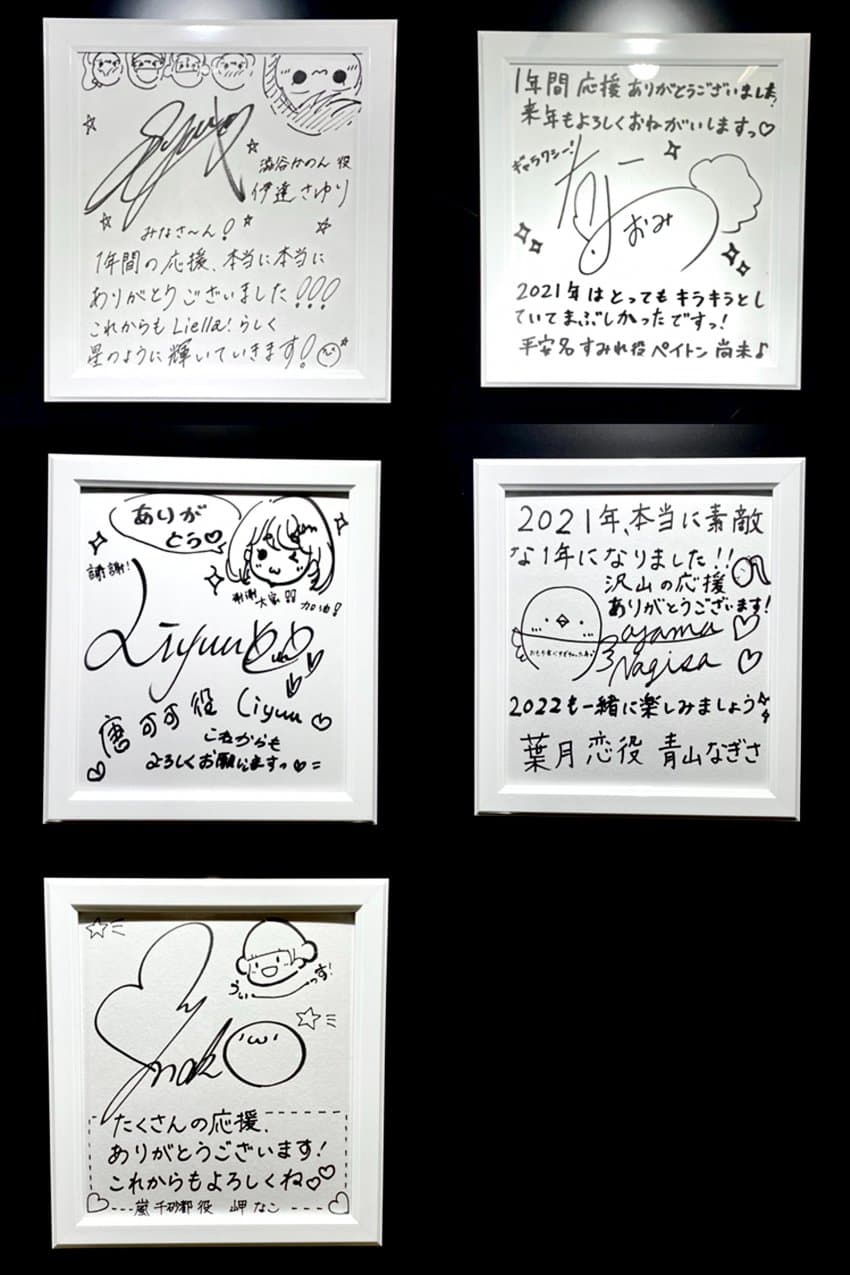 澁谷かのん 役
伊達さゆり
みなさ〜ん!
1年間の応援、本当に本当に
ありがとうございました!!!
これからも Liella! らしく
星のように輝いていきます!
1年間 応援 ありがとうございました
来年もよろしくおねがいしますっ♡
ギャラクシー!
なー
おみ
2021年はとってもキラキラとし
ていてまぶしかったですっ!
平安名すみれ役 ペイトン 尚未♪
ありが
とう♡
謝謝!
谢谢
大家!!
加油!
Liyuu
唐 可可 役 Liyuu ♡
これからも
よろしくお願いしますっ♡=
2021年、本当に素敵
な1年になりました!!
沢山の応援
ありがとうございます!
aoyama
Nagisa
2022も一緒に楽しみましょう
葉月 恋役 青山なぎさ
うぃーっす!
Nako
たくさんの応援、
ありがとうございます!
これからもよろしくね♡♡
嵐 千砂都 役 岬 なこ